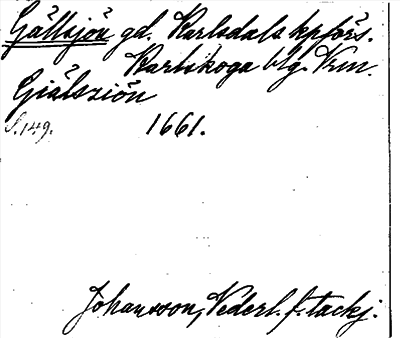 Gällsjön gd. Karlsdals kpförs.
Karlskoga blg. Vrm.
Giälsziön
S.149. 1661.
Johansson, Nederl. f. tackj.